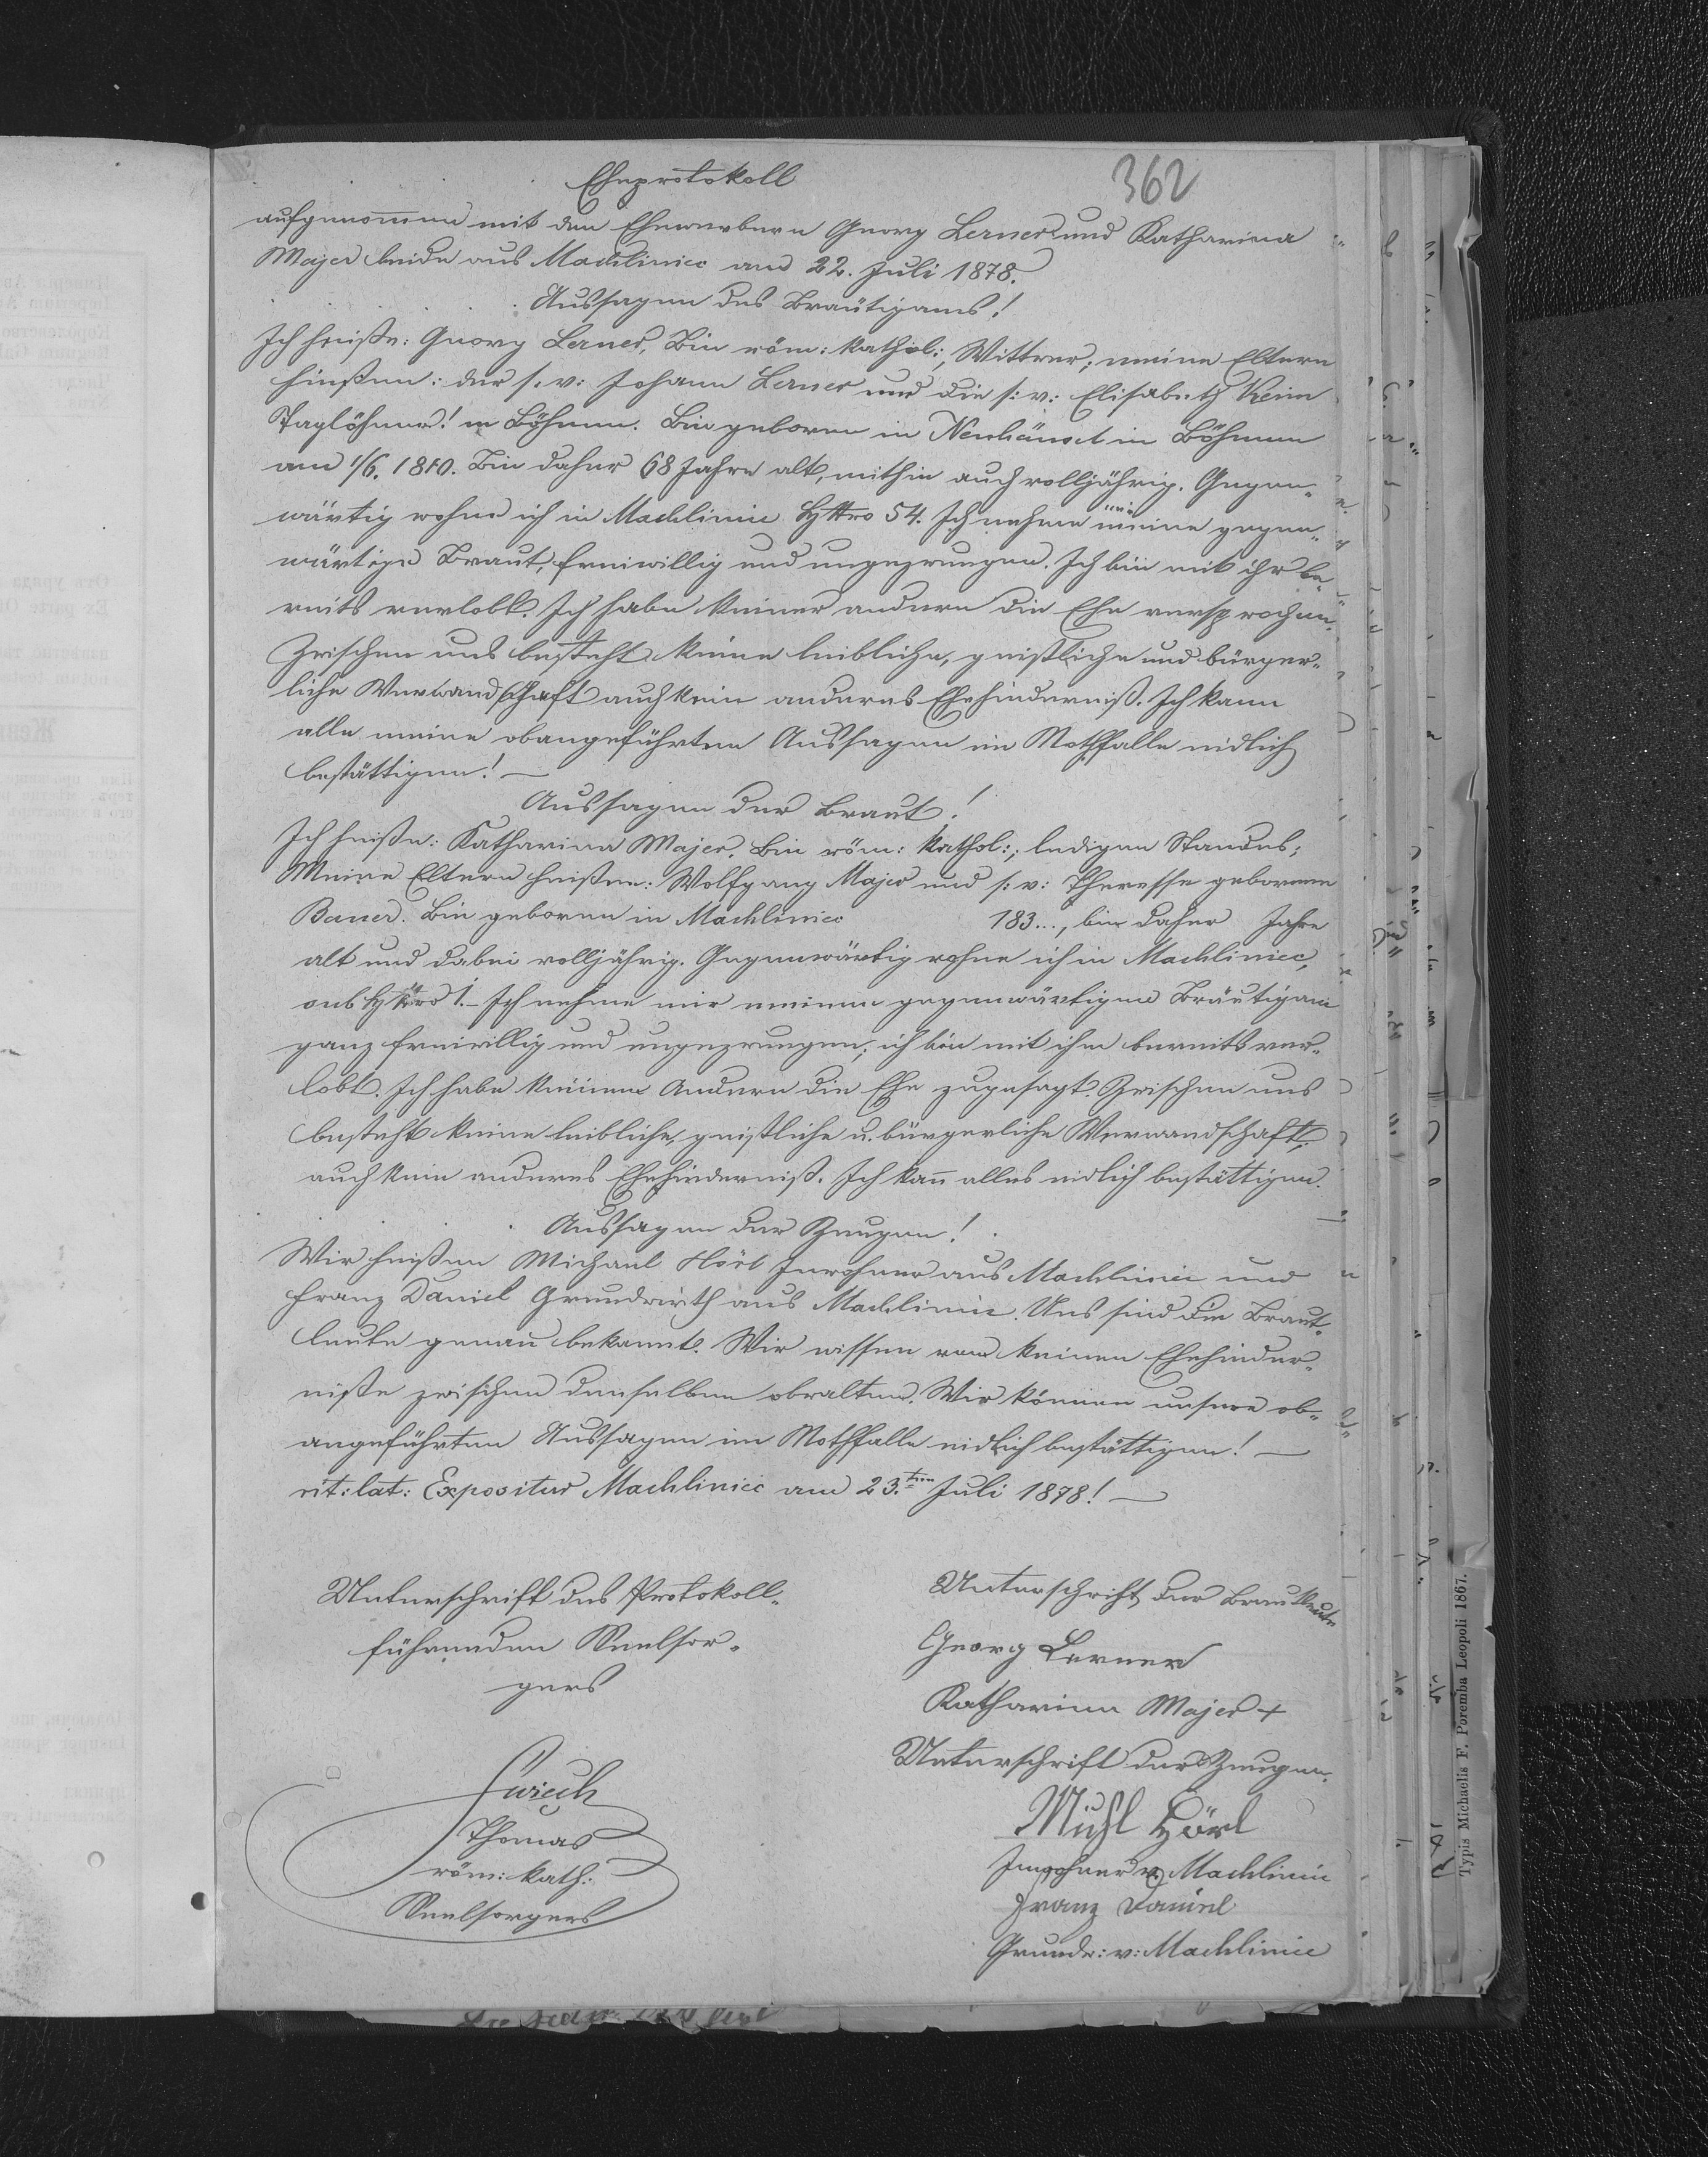 Eheprotokoll
362
aufgenommen mit den Ehewerbern Georg Lerner und Katharina
Majer beide aus Machliniec am 22. Juli 1878.
Aussagen des Bräutigams!
Ich heiße: Georg Lerner, Bin röm: kathol:, Wittwer; meine Eltern
hießen: der s: v: Johann Lerner und die s: v: Elisabeth Keim
Taglöhner! in Böhmen. Bin geboren in Neuhäusel in Böhmen
am 1/6. 1810. Bin daher 68 Jahre alt, mithin auch volljährig. Gegen„
wärtig wohne ich in Machliniec HNro 54. Ich nehme meine gegen„
wärtige Braut, freiwillig und ungezwungen. Ich bin mit ihr be„
reits verlobt. Ich habe keiner andern die Ehe versprochen.
Zwischen uns besteht keine leibliche, geistliche und bürger„
liche Verwandschaft auch kein anderes Ehehinderniß. Ich kann
alle meine obangeführten Aussagen im Nothfalle eidlich
bestättigen! —
Aussagen der Braut!
Ich heiße: Katharina Majer. Bin röm: kathol:; ledigen Standes;
Meine Eltern heißen: Wolfgang Majer und s: v: Theresse geborene
Bauer. Bin geboren in Machliniec 183..., bin daher Jahre
alt und dabei volljährig. Gegenwärtig wohne ich in Machliniec,
sub HNro 1. – Ich nehme mir meinen gegenwärtigen Bräutigam
ganz freiwillig und ungezwungen; ich bin mit ihm bereits ver„
lobt. Ich habe keinem Andern die Ehe zugesagt. Zwischen uns
besteht keine leibliche, geistliche u. bürgerliche Verwandschaft;
auch kein anderes Ehehinderniß. Ich kan̄ alles eidlich bestättigen.
Aussagen der Zeugen!
Wir heißen Michael Hörl Inwohner aus Machliniec und
Franz Daniel Grundwirth aus Machliniec. Uns sind die Braut„
leute genau bekannt. Wir wissen von keinen Ehehinder„
niße zwischen denselben obwalten. Wir können unsere ob„
angeführten Aussagen im Nothfalle eidlich bestättigen! —
rit: lat: Expositur Machliniec am 23.ten Juli 1878! —
Unterschrift des Protokoll„
führenden Seelsor„
gers
Thomas
röm: kath:
Seelsorgers
Unterschrift der Brautleute
Georg Lerner
Katharina Majer +
Unterschrift der Zeugen.
Michl Hörl
Inwohner v. Machliniec
Franz Daniel
Grundw: v: Machliniec
Typis Michaelis F. Poremba Leopoli 1867.